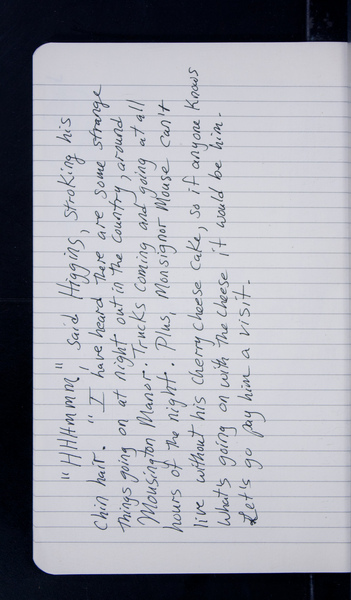 "HHHmmm", said Higgins, stroking his
chin hair. "I have heard there are some strange
things going on at night out in the country, around
Mousington Manor. Trucks coming and going at all
hours of the night. Plus, Monsignor Mouse can't
live without his cherry cheese cake, so if anyone knows
what's going on with the cheese it would be him.
Let's go pay him a visit.